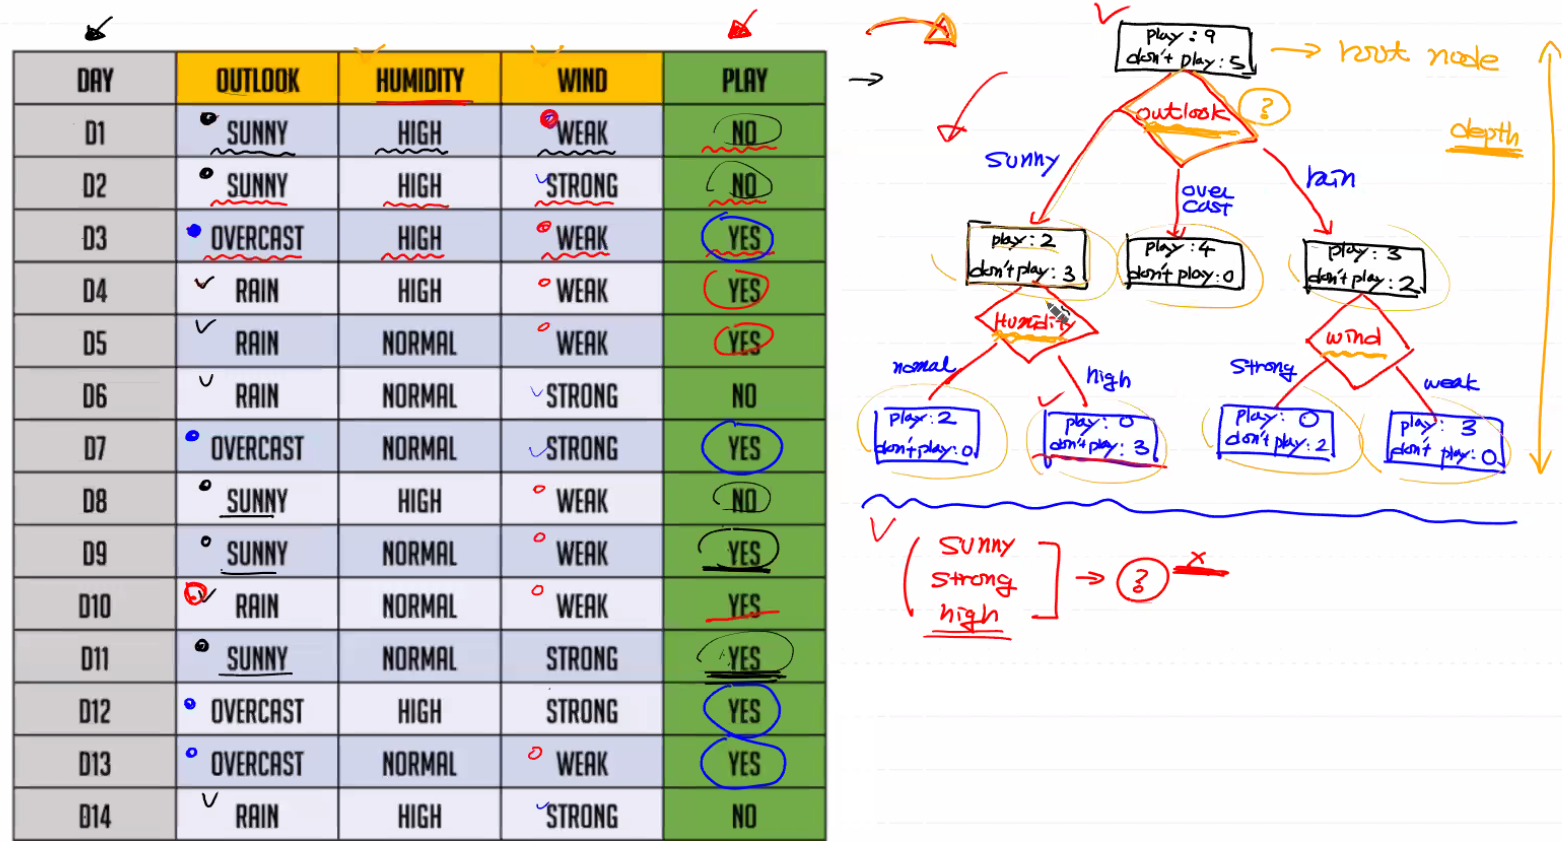 DAY OUTLOOK HUMIDITY WIND PLAY
D1 SUNNY HIGH WEAK NO
D2 SUNNY HIGH STRONG NO
D3 OVERCAST HIGH WEAK YES
D4 RAIN HIGH WEAK YES
D5 RAIN NORMAL WEAK YES
D6 RAIN NORMAL STRONG NO
D7 OVERCAST NORMAL STRONG YES
D8 SUNNY HIGH WEAK NO
D9 SUNNY NORMAL WEAK YES
D10 RAIN NORMAL WEAK YES
D11 SUNNY NORMAL STRONG YES
D12 OVERCAST HIGH STRONG YES
D13 OVERCAST NORMAL WEAK YES
D14 RAIN HIGH STRONG NO
play: 9
don't play: 5
→ root node
outlook
?
depth
sunny
over
cast
rain
play: 2
don't play: 3
play: 4
don't play: 0
play: 3
don't play: 2
Humidit
wind
nomal
high
strong
weak
play: 2
don't play: 0
play: 0
don't play: 3
play: 0
don't play: 2
play: 3
don't play: 0
sunny
strong → ? x
high